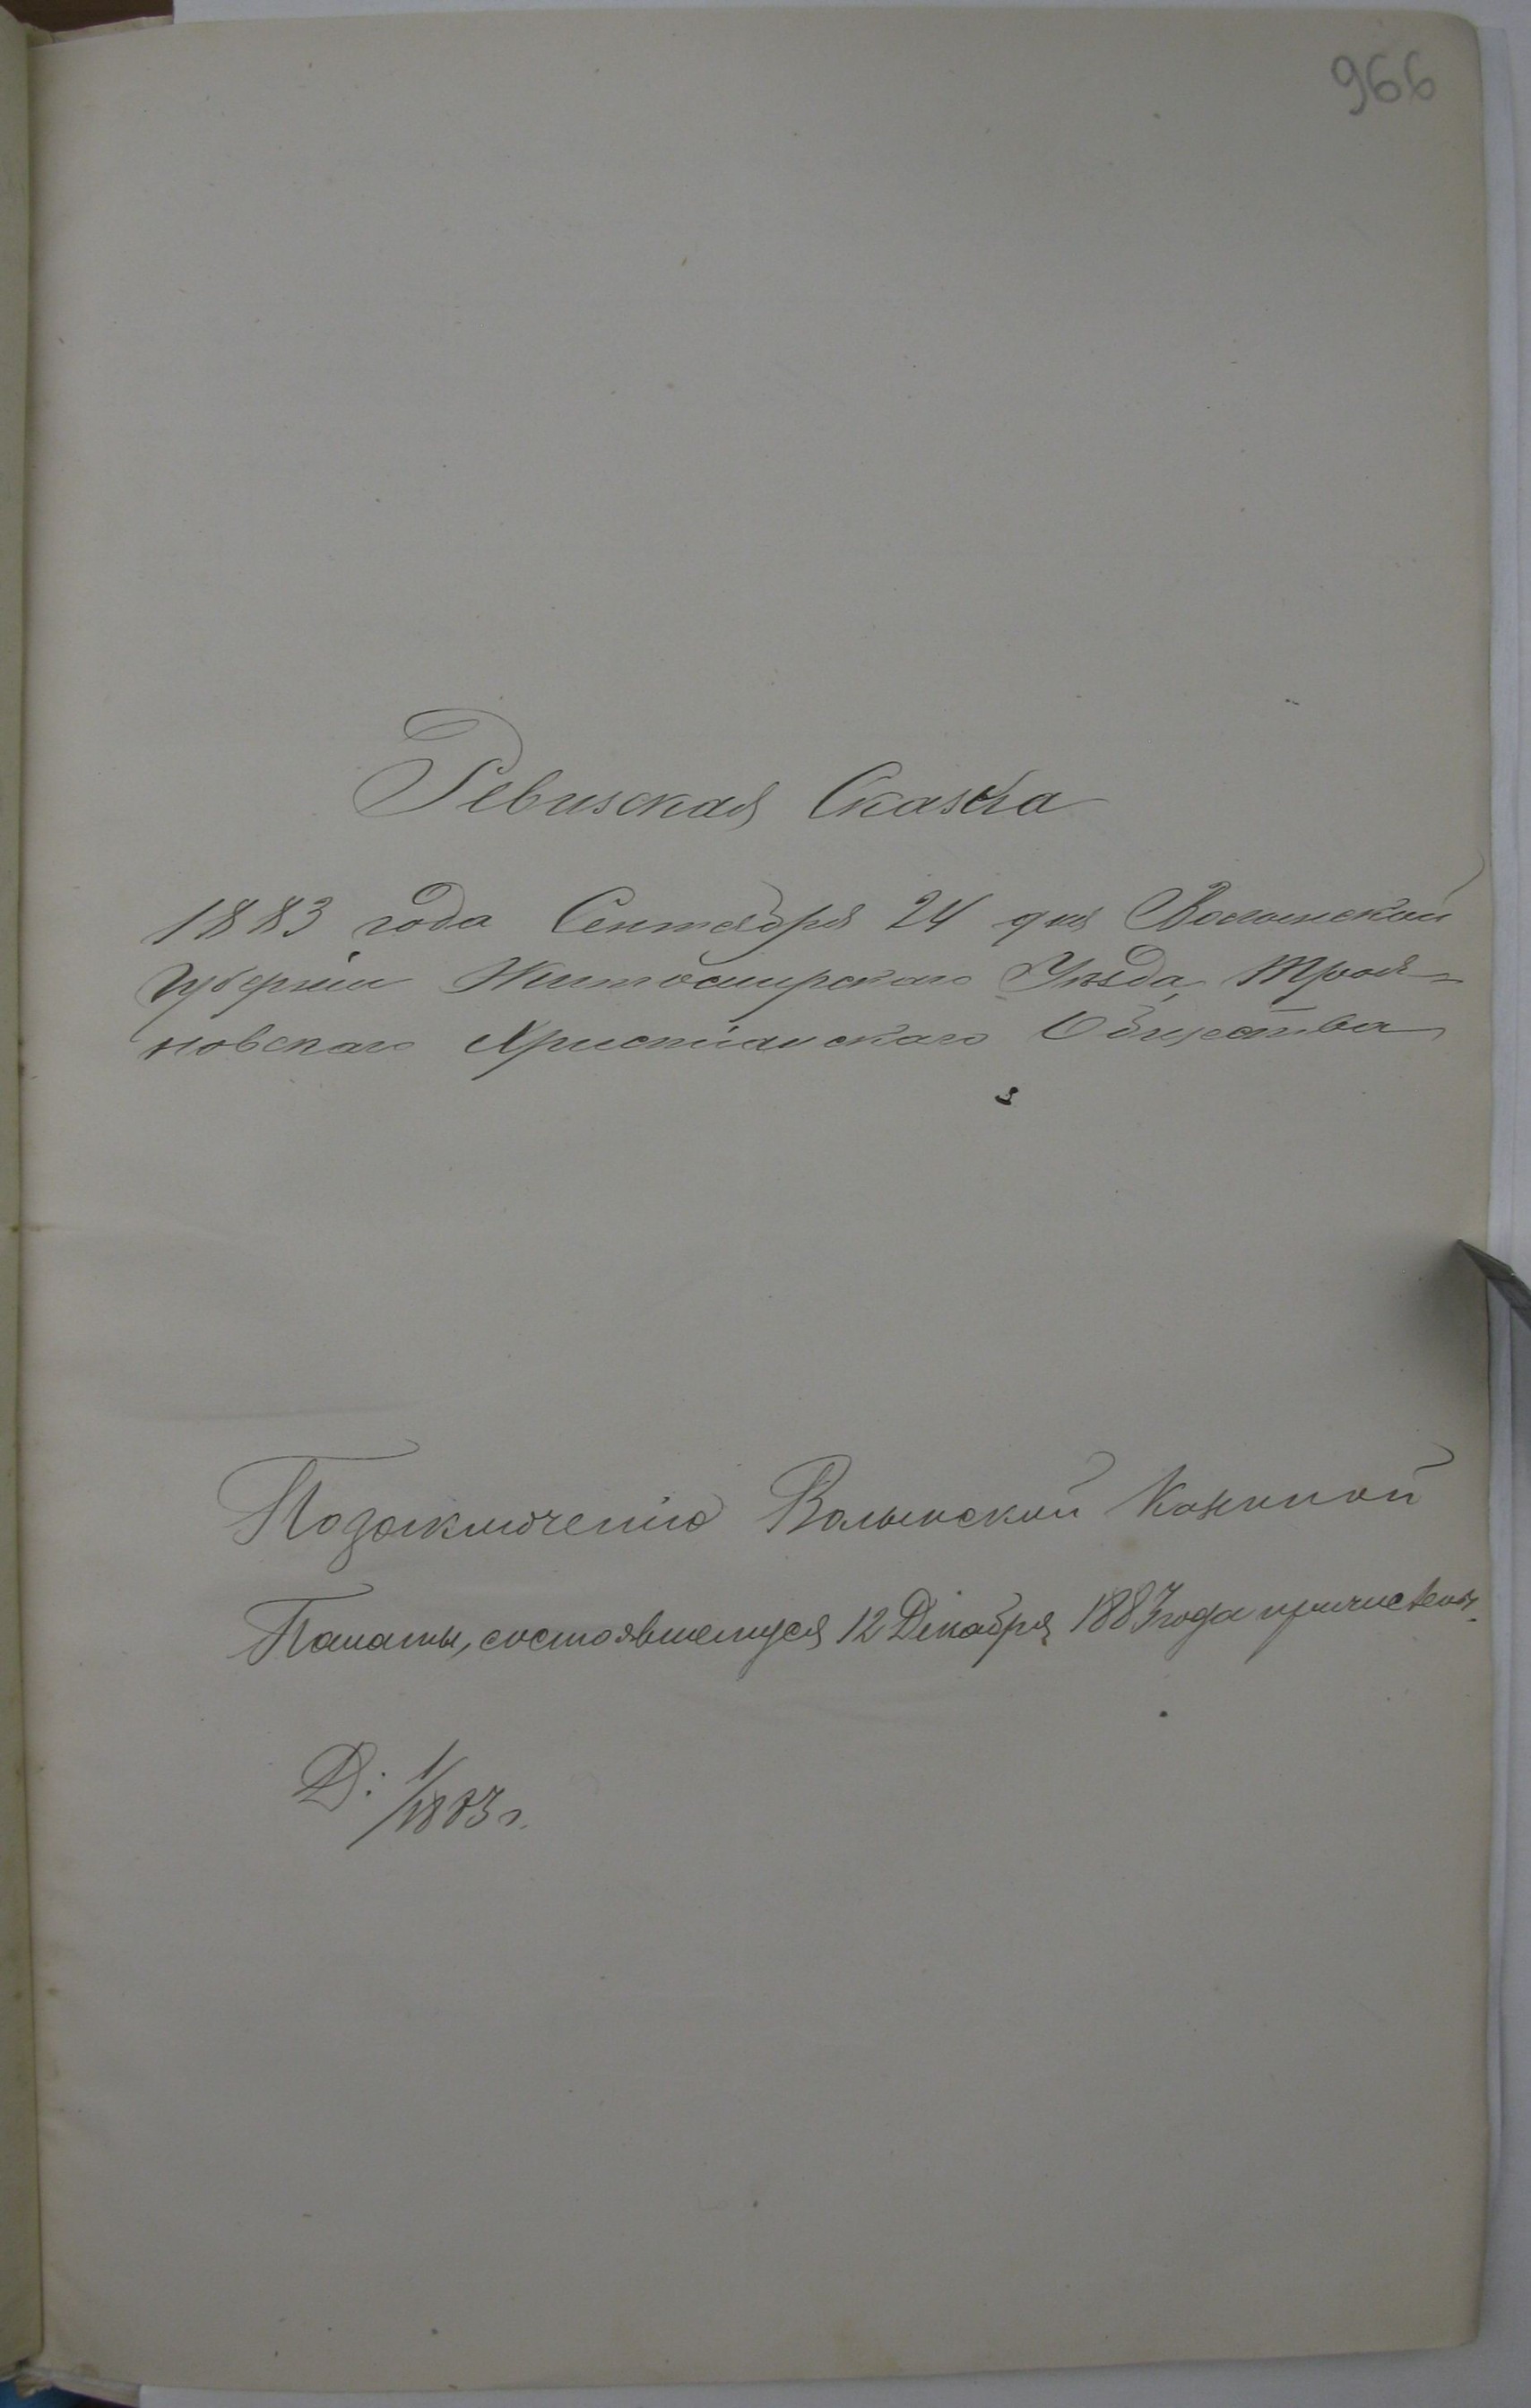 966
Ревизская Сказка
1883 года Сентября 24 дня Волынской
Губерніи Житомирскаго Уѣзда Троя-
новскаго Христіанскаго Общества
Позаключенію Волынской Казенной
Палаты, состоявшемуся 12 Декабря 1883 года причислены
Д: 1/1883 г.